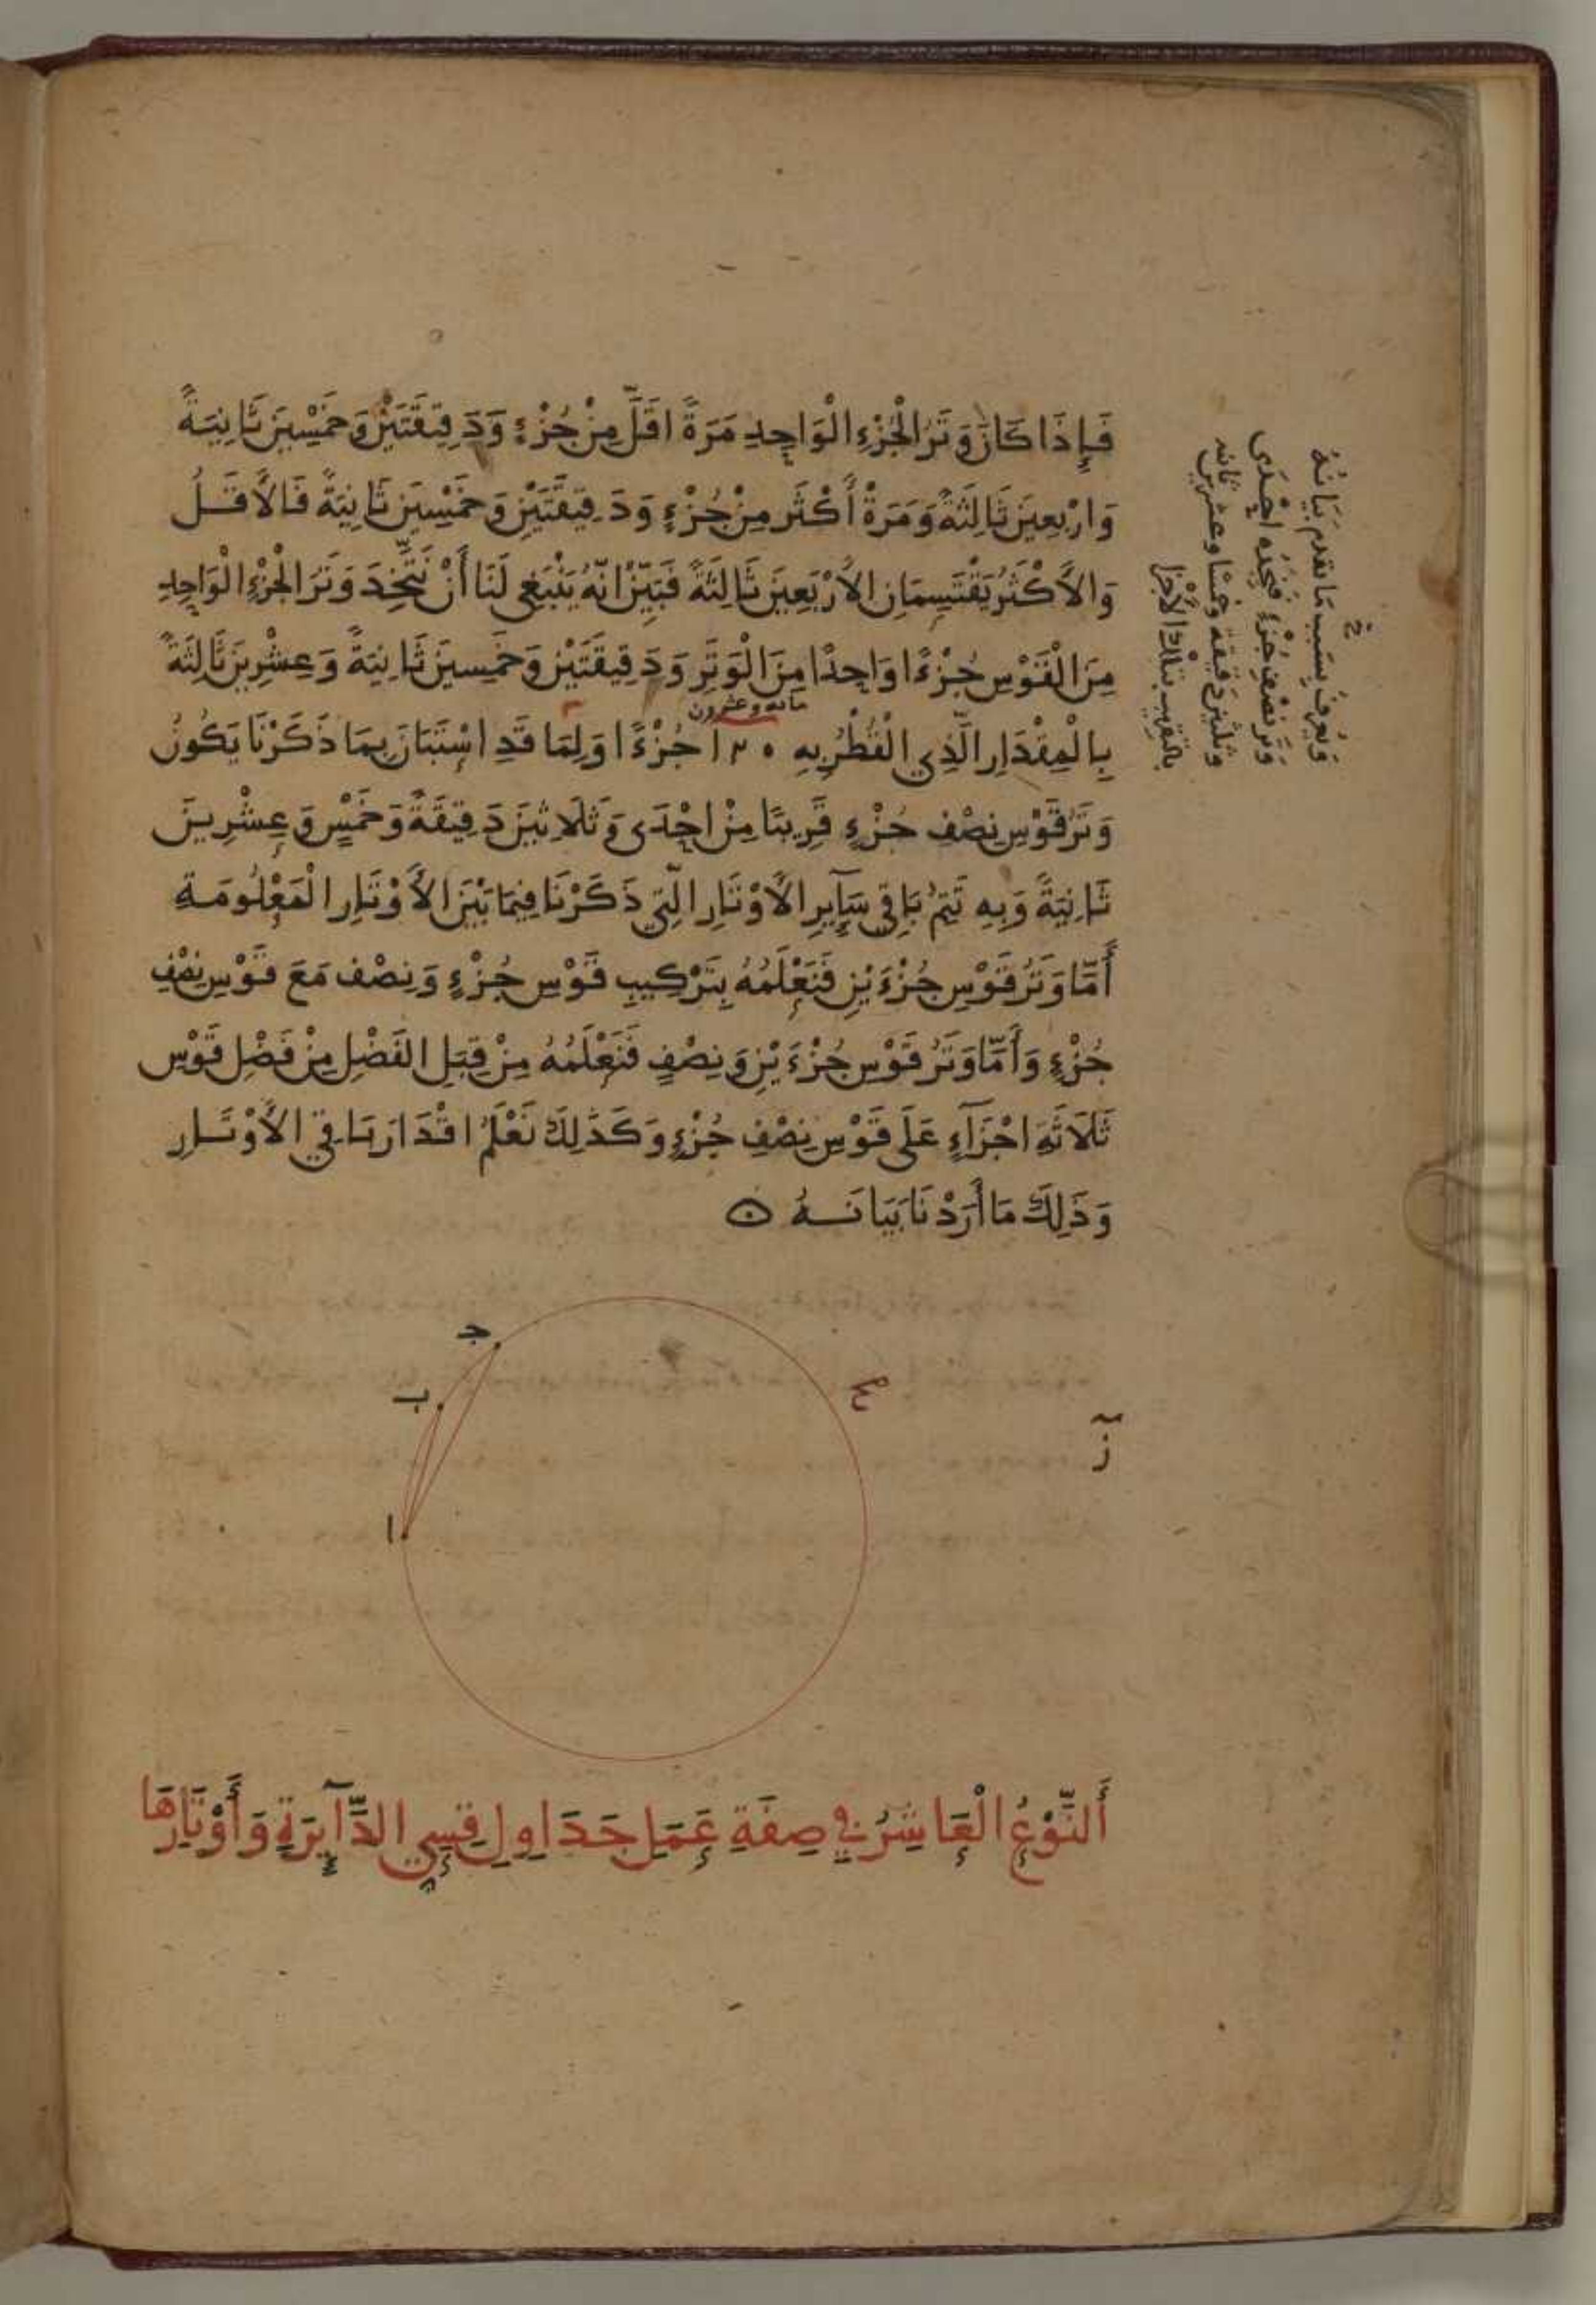 فَإِذَا كَانَ وَتَرُ الْجُزْءِ الْوَاحِدِ مَرَةً اقَلَّ مِنْ جُزْءٍ وَدَقِيقَتَيْنِ وَخَمْسِينَ ثَانِيَةً
وَارْبعِينَ ثَالِثَةً وَمَرَةً أَكْثَر مِنْ جُزْءٍ وَدَقِيقَتَيْنِ وَخَمْسِينَ ثَانِيَةً فَالأَقَلُ
وَالأَكْثَرُ يَقْتَسِمَانِ الأَرْبَعِينَ ثَالِثَةً فَبَيِّنْ انّهُ يَنْبَغِي لَنَا أَنْ نَتَّخِذَ وَتَرَ الْجُزْءِ الْوَاحِدِ
مِنَ الْقَوْسِ جُزْءًا وَاحِدًا مِنَ الْوَتَرِ وَدَقِيقَتَيْنِ وَخَمسِينَ ثَانِيَةً وَعِشْرِينَ ثَالِثَةً
مائه وعشرون
بِالْمِقْدَارِ الَّذِي الْقُطْرُ بِهِ ١٢٠ جُزْءًا وَلِمَا قَدِ اسْتَبَانَ بِمَا ذَكَرْنَا يَكُونُ
وَتَرُ قَوْسِ نِصْفِ جُزْءٍ قَرِيبًا مِنْ احْدَى وَثَلَاثِينَ دَقِيقَةً وَخَمْسٍ وَعِشْرِينَ
ثَانِيَةً وَبِهِ تَتِمُّ بَاقِي سَآيِرِ الأَوْتَارِ الَّتِي ذَكَرْنَا فِيمَا بَيْنَ الأَوْتَارِ الْمَعْلُومَةِ
أَمّا وَتَرُ قَوْسِ جُزْءَيْنِ فَنَعْلَمُهُ بِتَرْكِيبِ قَوْسِ جُزْءٍ وَنِصْف مَعَ قَوْسِ نِصْفِ
جُزْءٍ وَأَمّا وَتَرُ قَوْسِ جُزْءَيْنِ وَنِصْفٍ فَنَعْلَمُهُ مِنْ قِبَلِ الفَضْلِ مِنْ فَضْلِ قَوْسِ
ثَلَاثَةِ اجْزَآءٍ عَلَى قَوْسِ نِصْفِ جُزْءٍ وَكَذَلِكَ نَعْلَمُ اقْدَارَ بَاقِي الأَوْتَارِ
وَذَلِكَ مَا أَرَدْنَا بَيَانَهُ
وَيُعرفُ بِسَبَب مَا تقدم بَيَانُهُ
وَتَر نصْفِ جُزْءٍ فَنَجِدُه احْدَى
وثلثين دقيقة وخمسا وعشرين ثانيه
بالتقريب بتلك الأجزا
ج
ب
ا
ز
أَلنَّوْعُ الْعَاشِرُ فِي صِفَةِ عَمَلِ جَدَاوِلِ قِسِيِّ الدَّآيِرَةِ وَأَوْتَارِهَا